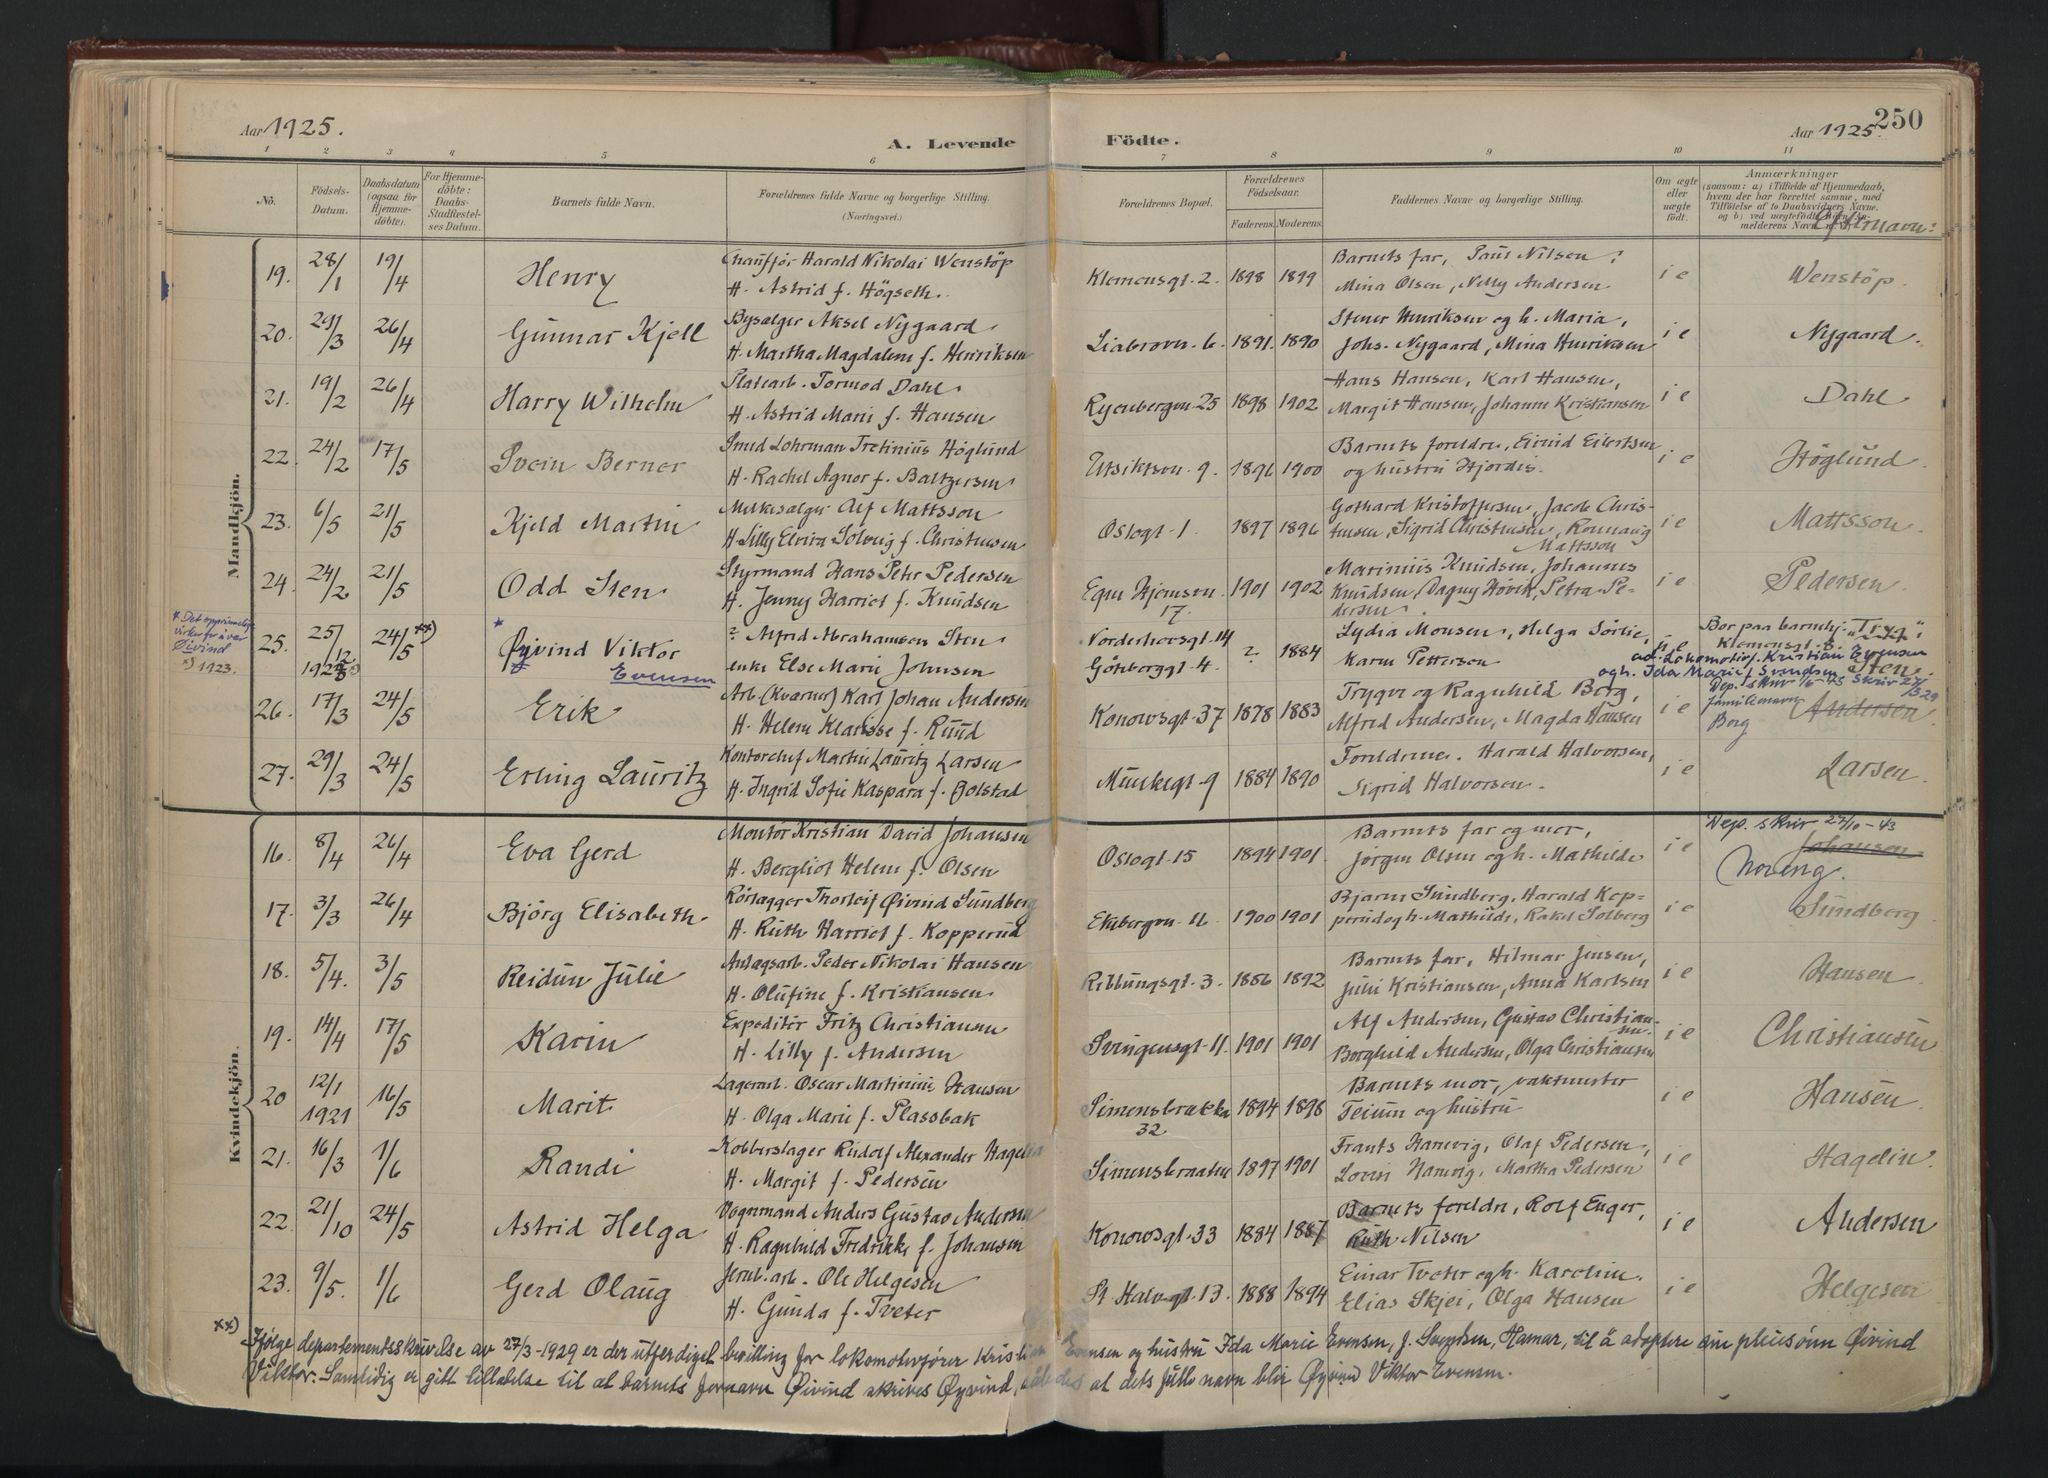 Aar 1925.
A. Levende Födte.
Aar 1925.
250
1 2 3 4 5 6 7 8 9 10 11
No.
Födsels-Datum.
Daabsdatum (ogsaa for Hjemme-döbte).
For Hjemme-döbte: Daabs-Stadfæstel-ses Datum.
Barnets fulde Navn.
Forældrenes fulde Navne og borgerlige Stilling. (Næringsvei.)
Forældrenes Bopæl.
Forældrenes Födselsaar.
Faderens. Moderens.
Faddernes Navne og borgerlige Stilling.
Om ægte eller uægte födt.
Anmærkninger
(saasom: a) i Tilfælde af Hjemmedaab,
hvem der har forrettet samme, med
Tilföielse af to Daabsvidners Navne,
og b) ved uægtefödte Börn An-
melderens Navn m. v.)
Efternavn:
Mandkjön.
19. 28/1 19/4 Henry Chauffør Harald Nikolai Wenstöp Klemensgt. 2. 1898 1899 Barnets far, Paul Nilsen, i e Wenstöp.
H. Astrid f. Högseth. Mina Olsen, Nelly Andersen
20. 29/3 26/4 Gunnar Kjell Bysælger Aksel Nygaard Liabrovn. 6. 1891. 1890 Stener Henriksen og h. Maria, i e Nygaard.
H. Martha Magdalene f. Henriksen Johs. Nygaard, Mina Henriksen
21. 19/2 26/4 Harry Wilhelm Platearb. Tormod Dahl Ryenbergvn. 25 1898 1902 Hans Hansen, Karl Hansen, i e Dahl
H. Astrid Marie f. Hansen Margit Hansen, Johanne Kristiansen
22. 24/2 17/5 Svein Berner Smed Lohrman Tretinius Höglund Utsiktsvn. 9. 1896 1900 Barnets foreldre, Eivind Eilertsen i e Höglund.
H. Rachel Agnor f. Baltzersen og hustru Hjordis.
23. 6/5 21/5 Kjeld Martin Melkesælger Alf Mattsson Oslogt. 1. 1897 1896 Gothard Kristoffersen, Jacob Chris- i e Mattsson.
H. Lilly Elvira Solveig f. Christensen tensen, Sigrid Christensen, Ronnaug
Mattsson
24. 24/2 21/5 Odd Sten Styrmand Hans Peter Pedersen Egne Hjemsvn. 17. 1901 1902 Marinius Knudsen, Johannes i e Pedersen.
H. Jenny Harriet f. Knudsen Knudsen, Dagny Hövik, Petra Pe-
dersen.
* Det opprinnelige
Øivind
*) 1923.
25. 25/12 1923 24/5 xx) Øyvind Viktor Evensen ? Alfred Abrahamsen Sten Norderhovsgt. 14 ? 1884 Lydia Monsen, Helga Sörlie, u e Bor paa barnehj. "Tryg":
enke Else Marie Johnsen Göteborggt. 4. Karen Pettersen Klemensgt. 8.
ad. Lokomotivf. Kristian Evensen
og h. Ida Marie f. Svendsen skriv 27/3 29
Sten.
26. 17/3 24/5 Erik Arb. (Kværner) Karl Johan Andersen Konowsgt. 37 1878 1883 Trygve og Ragnhild Borg, i e Andersen.
H. Helene Klarisse f. Ruud Alfred Andersen, Magda Hansen familienavn Borg
27. 29/3 24/5 Erling Lauritz Kontorchef Martin Lauritz Larsen Munkegt. 9 1884 1890 Foreldrene. Harald Halvorsen, i e Larsen.
H. Ingrid Sofie Kaspara f. Bolstad Sigrid Halvorsen.
Kvindekjön.
16. 8/4 26/4 Eva Gerd Montör Kristian David Johansen Oslogt. 15 1894 1901. Barnets far og mor, i e Dep. skriv 27/10 - 43
H. Bergliot Helene f. Olsen Jörgen Olsen og h. Mathilde Johansen
Noreng.
17. 3/3 26/4 Björg Elisabeth. Rörlægger Thorleif Øivind Sundberg Ekebergvn. 11 1900 1901 Bjarne Sundberg, Harald Kop- i e Sundberg
H. Ruth Harriet f. Kopperud perud og h. Mathilde, Rakel Solberg
18. 5/4. 3/5 Reidun Julie Anlægsarb. Peder Nikolai Hansen Ribbungsgt. 3. 1886 1892 Barnets far, Hilmar Jensen, i e Hansen
H. Olufine f. Kristiansen. Julie Kristiansen, Anna Karlsen
19. 14/4 17/5 Karin Expeditör Fritz Christiansen Svingensgt. 11. 1901 1901 Alf Andersen, Gustav Christian- i e Christiansen
H. Lilly f. Andersen sen. Borghild Andersen, Olga Christiansen
20 12/1 1921 16/5 Marit Lagerarb. Oscar Martinius Hansen Simensbrækka 32 1894 1898 Barnets mor, vaktmester i e Hansen
H. Olga Marie f. Plassbak Teium og hustru
21. 16/3 1/6 Randi Kobberslager Rudolf Alexander Hagelin Simensbraaten 1897 1901 Frants Hamvig, Olaf Pedersen, i e Hagelin.
H. Margit f. Pedersen Lovise Hamvig, Martha Pedersen
22. 21/10 24/5 Astrid Helga Vognmand Anders Gustav Andersen Konowsgt. 33 1884 1887 Barnets foreldre, Rolf Enger, i e Andersen
H. Ragnhild Fredrikke f. Johansen Ruth Nilsen
23. 9/5. 1/6 Gerd Olaug Jernb. arb. Ole Helgesen St. Halv. gt. 13. 1888 1894 Einar Tveter og h. Karoline. i e Helgesen
H. Gunda f. Tveter Elias Skjei, Olga Hansen
xx) Ifølge departementsskrivelse av 27/3-1929 er der utferdiget bevilling for lokomotivfører Kristian Evensen og hustru Ida Marie Evensen, f. Svendsen, Hamar, til å adoptere sin pleiesønn Øivind
Viktor. Samtidig er gitt tillatelse til at barnets fornavn Øivind skrives Øyvind, således at dets fulle navn blir Øyvind Viktor Evensen.